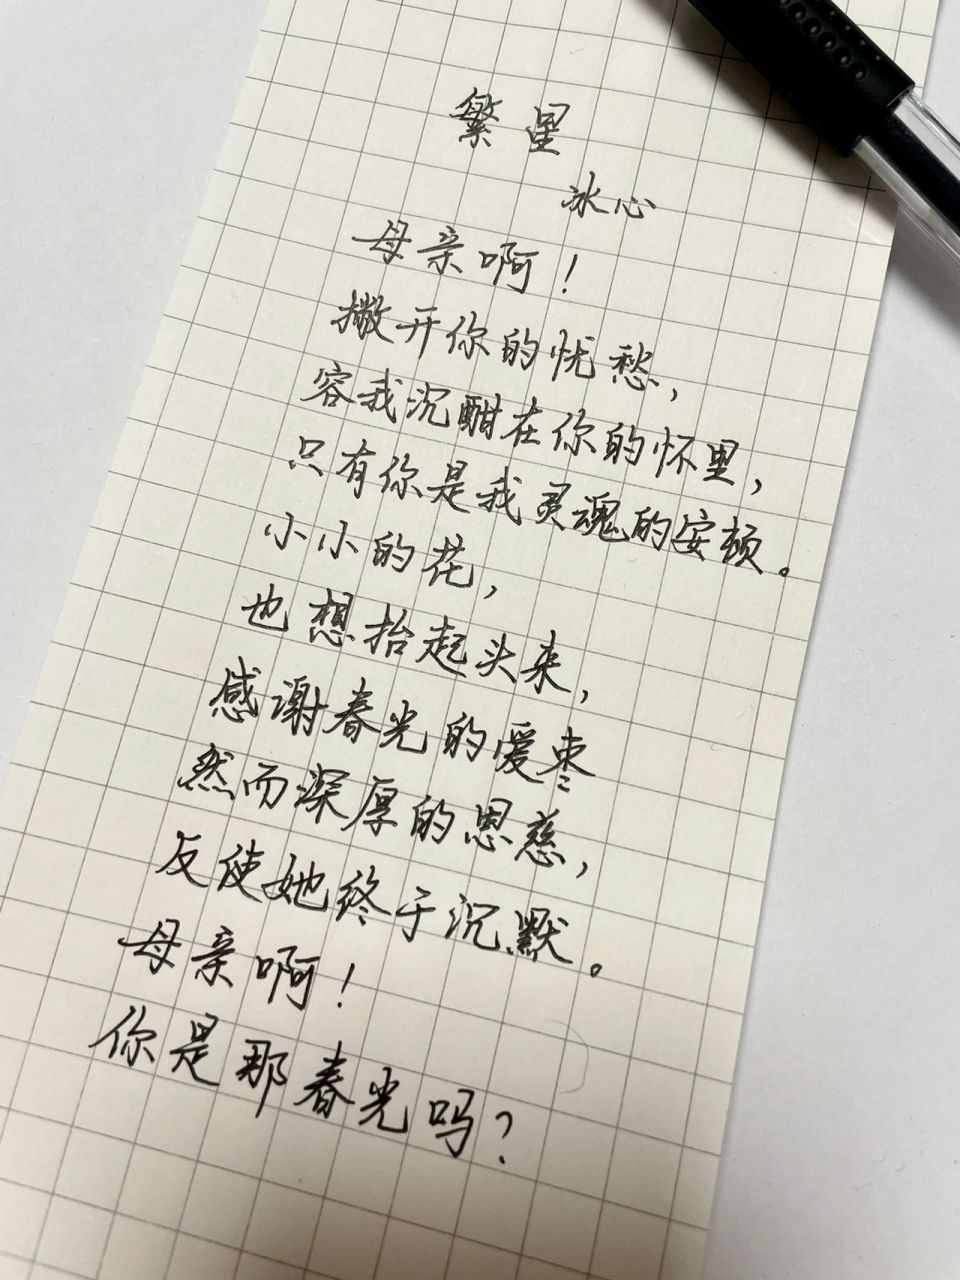 繁星
冰心
母亲啊！
撇开你的忧愁，
容我沉酣在你的怀里，
只有你是我灵魂的安顿。
小小的花，
也想抬起头来，
感谢春光的爱枣
然而深厚的恩慈，
反使她终于沉默。
母亲啊！
你是那春光吗？